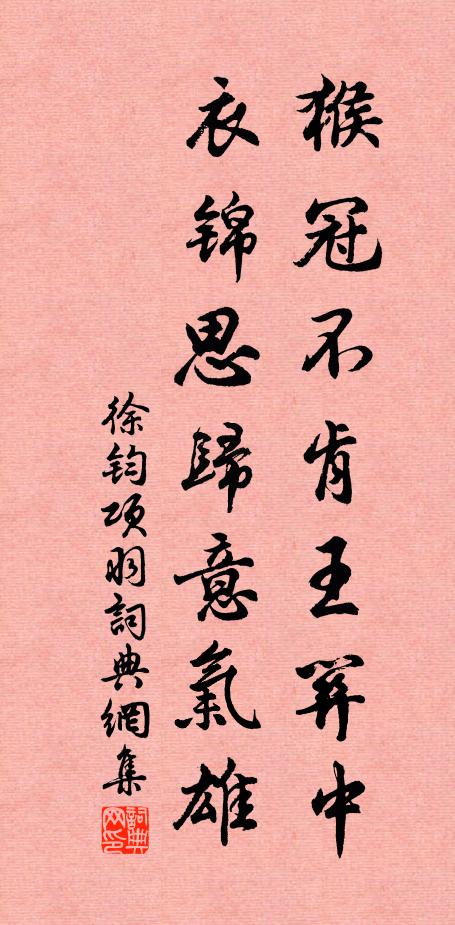 猴冠不肯王關中
衣錦思歸意氣雄
徐鈞項羽詞典網集
詞典网印